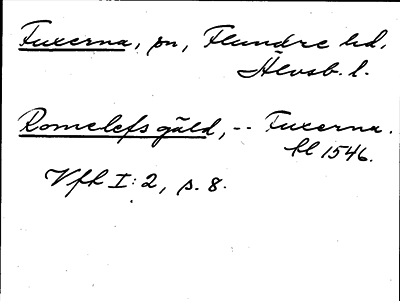 Fuxerna, sn, Flundre hd,
Älvsb. l.
Romelefs gäld, -- Fuxerna.
hl 1546.
Vfh I:2, s. 8.